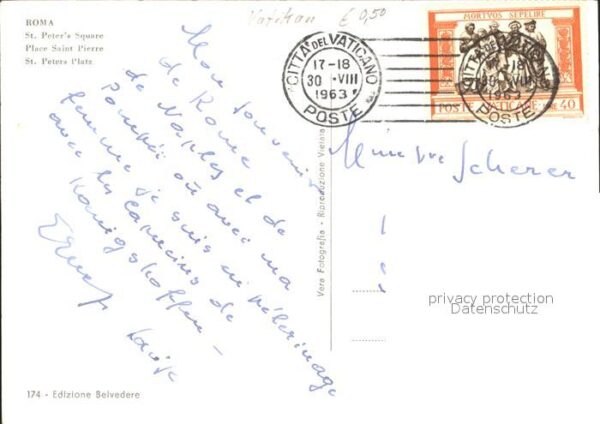 ROMA
St. Peter's Square
Place Saint Pierre
St. Peters Platz
Vatikan € 0,50
Mon souvenir
de Rome
de Naples et de
Pompéi où avec ma
femme je suis en pèlerinage
avec les capucins de
Königshoffen -
Ernest
CITTA' DEL VATICANO
17-18
30 VIII
1963
POSTE
MORTVOS SEPELIRE
POSTE VATICANE
40
CITTA' DEL VATICANO
17-18
30 VIII
1963
POSTE
Mme Vve Scherer
Vera Fotografia - Riproduzione Vietata
privacy protection
Datenschutz
174 - Edizione Belvedere